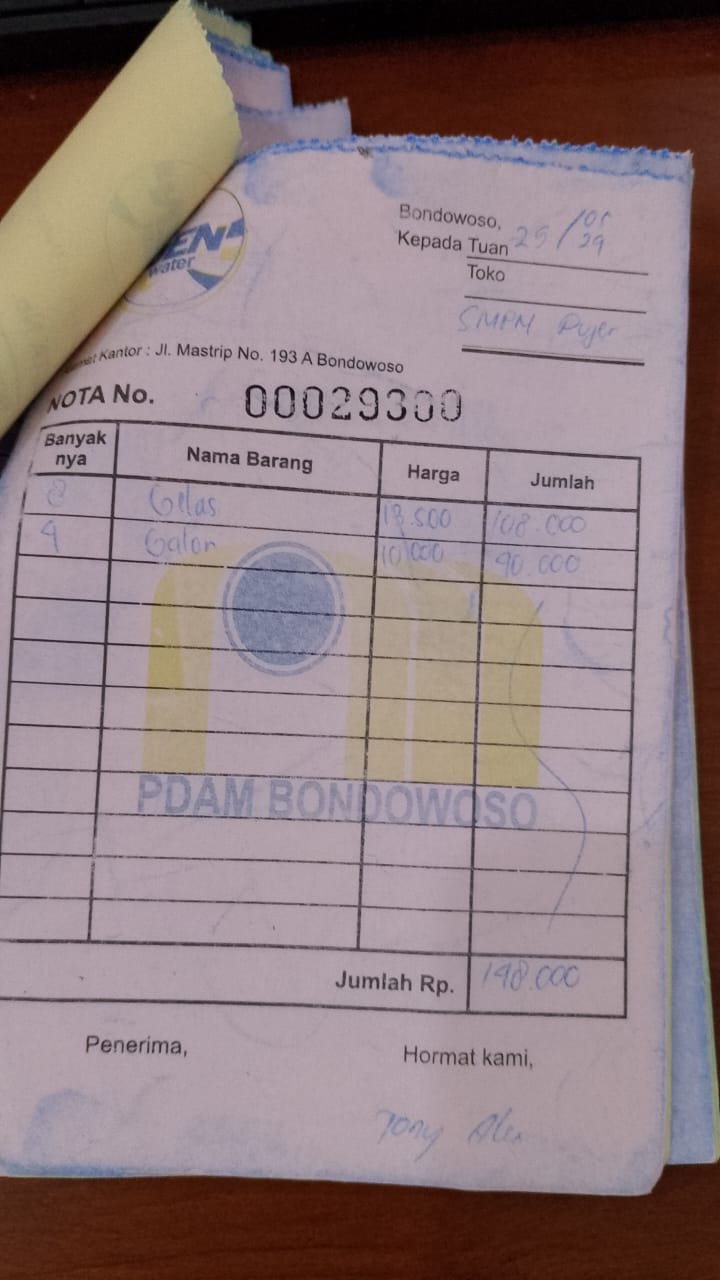 water
Bondowoso,
Kepada Tuan
Toko
SMPM Pujer
Kantor : Jl. Mastrip No. 193 A Bondowoso
NOTA No. 00029300
Banyak nya Nama Barang Harga Jumlah
8 Gelas 13.500 108.000
9 Galon 10.000 90.000
PDAM BONDOWOSO
Jumlah Rp. 198.000
Penerima, Hormat kami,
Tony